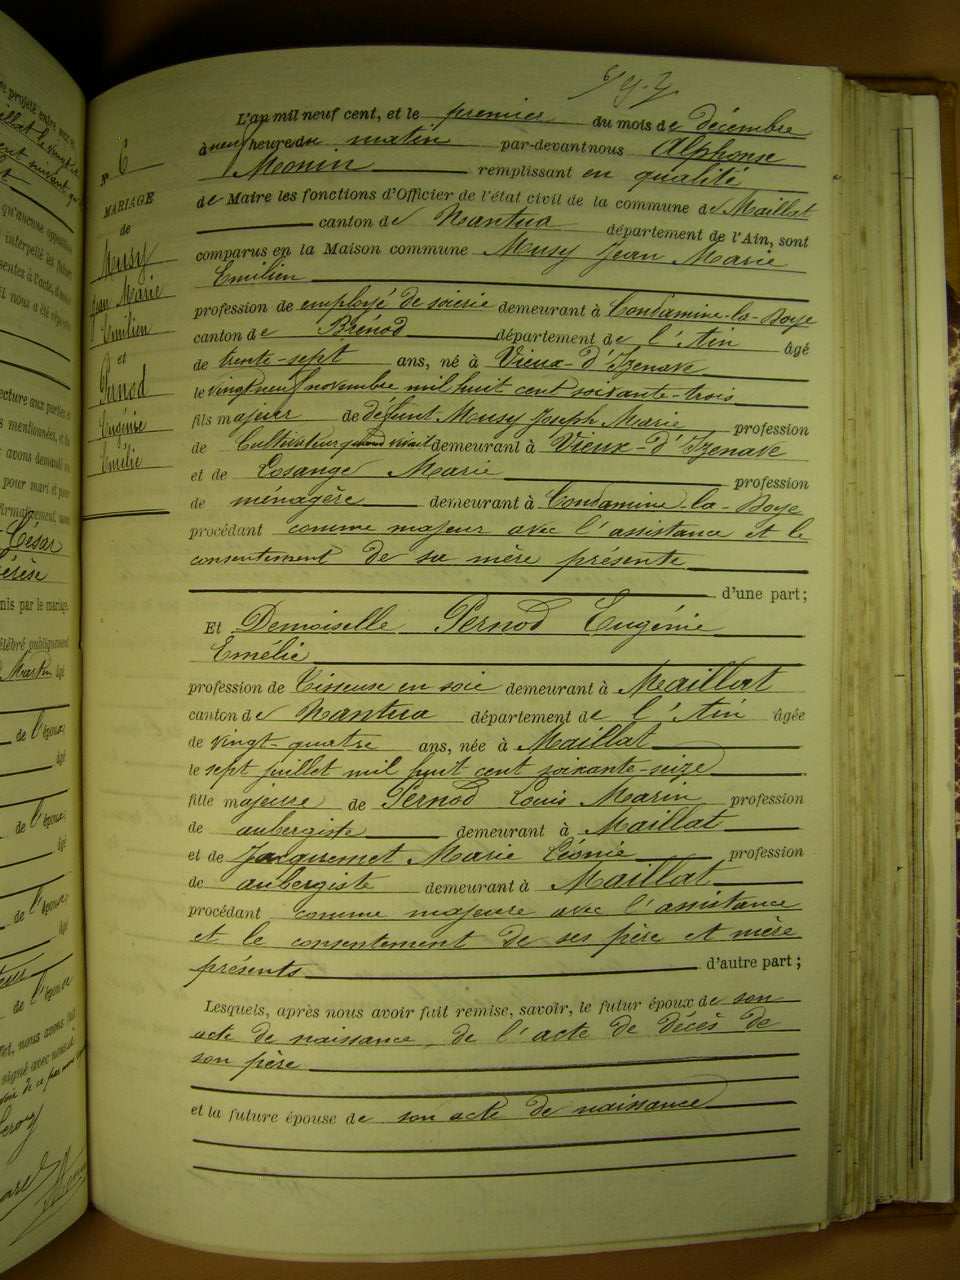 L'an mil neuf cent, et le premier du mois de décembre
à neuf heure du matin par-devant nous Alphonse
Monin remplissant en qualité
de Maire les fonctions d'Officier de l'état civil de la commune de Maillat
canton de Nantua département de l'Ain, sont
comparus en la Maison commune Musy Jean Marie
Emilien
profession de employé de soierie demeurant à Condamine-la-Doye
canton de Brénod département de l'Ain âgé
de trente-sept ans, né à Vieux-d'Izenave
le vingt neuf novembre mil huit cent soixante-trois
fils majeur de défunt Musy Joseph Marie profession
de Cultivateur quand vivait demeurant à Vieux-d'Izenave
et de Losange Marie profession
de ménagère demeurant à Condamine-la-Doye
procédant comme majeur avec l'assistance et le
consentement de sa mère présente
d'une part;
Et Demoiselle Pernod Eugénie
Emélie
profession de Tisseuse en soie demeurant à Maillat
canton de Nantua département de l'Ain âgée
de vingt-quatre ans, née à Maillat
le sept juillet mil huit cent soixante-seize
fille majeure de Pernod Louis Marin profession
de aubergiste demeurant à Maillat
et de Jacquemet Marie Léonie profession
de aubergiste demeurant à Maillat
procédant comme majeure avec l'assistance
et le consentement de ses père et mère
présents d'autre part;
Lesquels, après nous avoir fait remise, savoir, le futur époux de son
acte de naissance, de l'acte de décès de
son père
et la future épouse de son acte de naissance
N° 6
MARIAGE
de
Musy
Jean Marie
Emilien
et
Pernod
Eugénie
Emélie